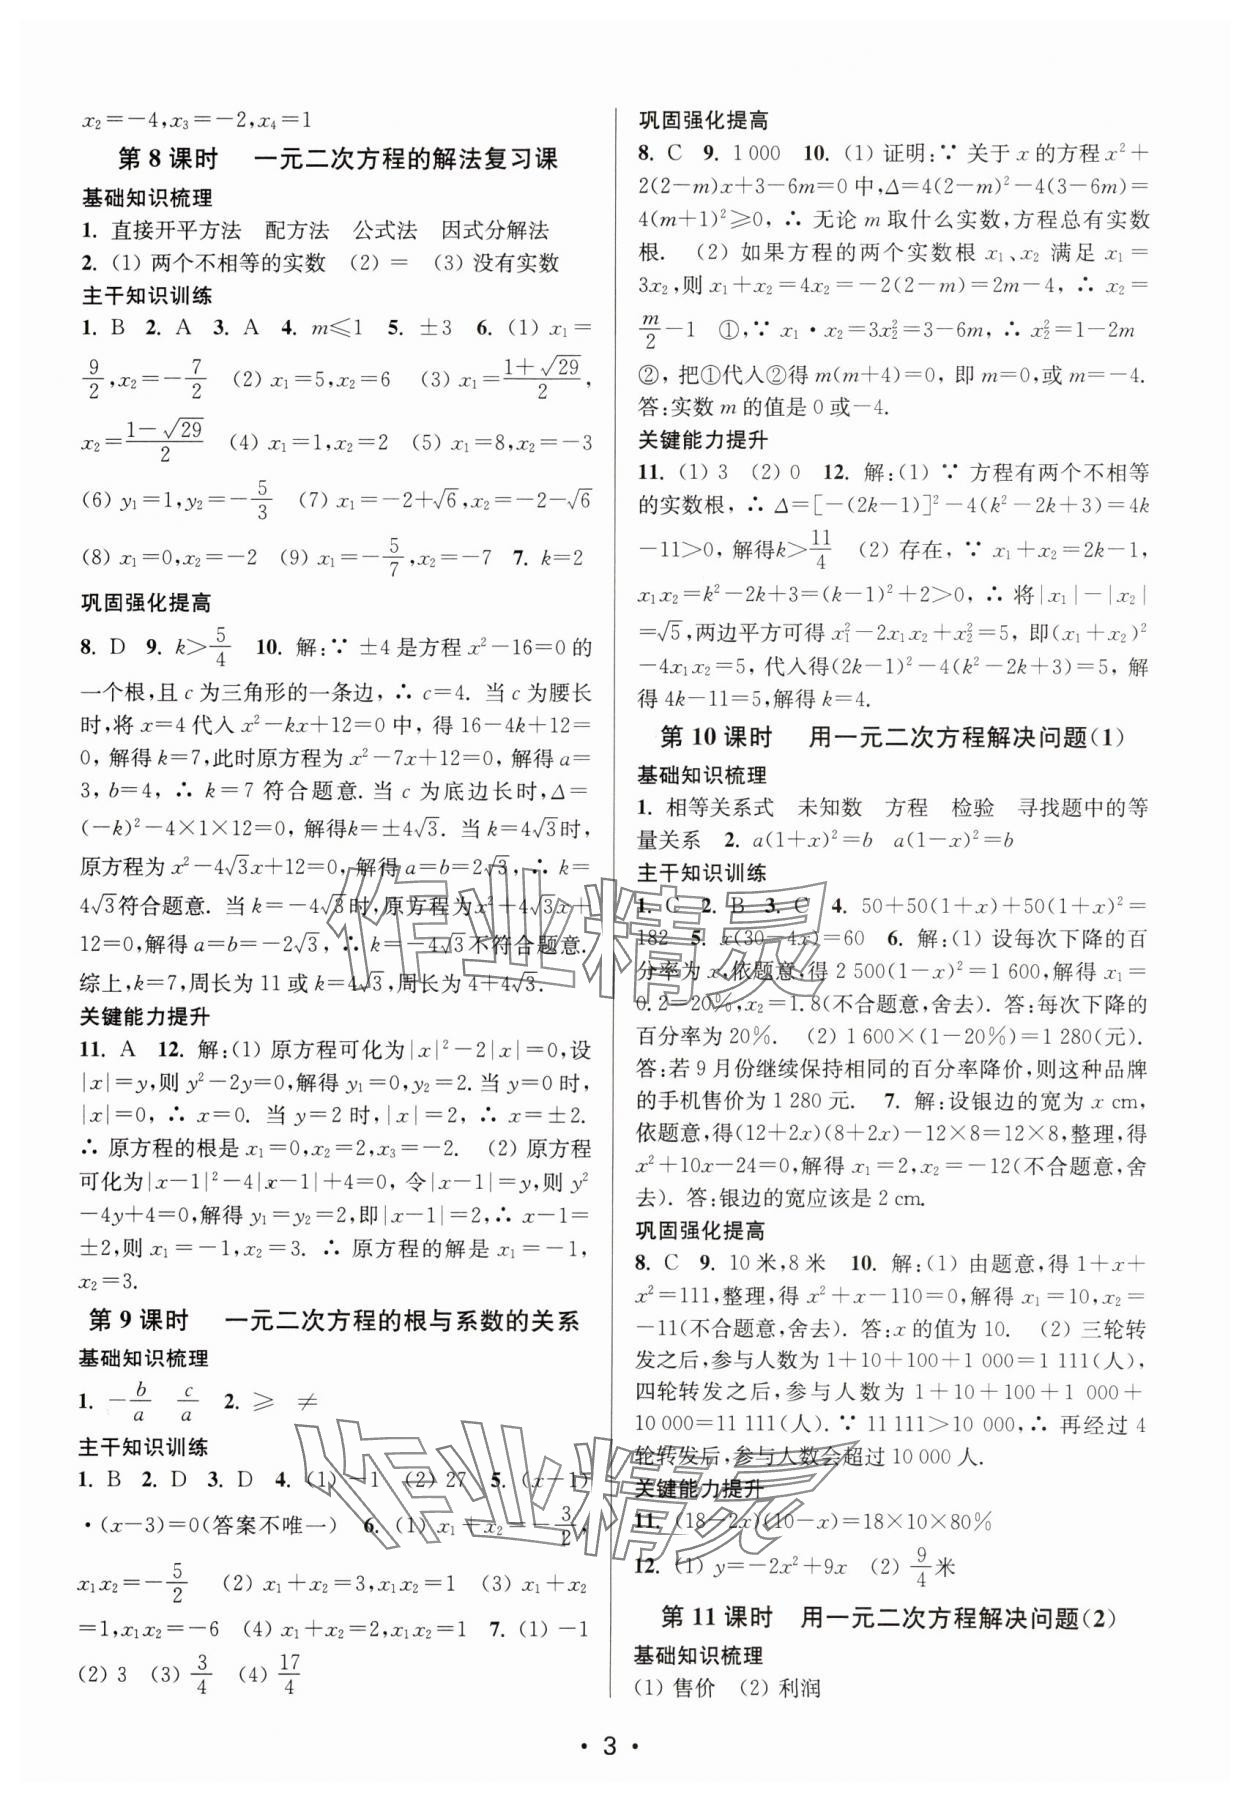 x₂=-4,x₃=-2,x₄=1
第 8 课时　一元二次方程的解法复习课
基础知识梳理
1. 直接开平方法　配方法　公式法　因式分解法
2. (1) 两个不相等的实数　(2) =　(3) 没有实数
主干知识训练
1. B　2. A　3. A　4. m⩽1　5. ±3　6. (1) x₁=
9/2,x₂=-7/2　(2) x₁=5,x₂=6　(3) x₁=(1+√29)/2,
x₂=(1-√29)/2　(4) x₁=1,x₂=2　(5) x₁=8,x₂=-3
(6) y₁=1,y₂=-5/3　(7) x₁=-2+√6,x₂=-2-√6
(8) x₁=0,x₂=-2　(9) x₁=-5/7,x₂=-7　7. k=2
巩固强化提高
8. D　9. k>5/4　10. 解:∵ ±4是方程 x²-16=0的
一个根,且 c 为三角形的一条边,∴ c=4. 当 c 为腰长
时,将 x=4 代入 x²-kx+12=0 中, 得 16-4k+12=
0, 解得 k=7,此时原方程为 x²-7x+12=0, 解得 a=
3, b=4, ∴ k=7 符合题意. 当 c 为底边长时,Δ=
(-k)²-4×1×12=0, 解得k=±4√3. 当 k=4√3时,
原方程为 x²-4√3x+12=0,解得 a=b=2√3,∴ k=
4√3符合题意. 当 k=-4√3时,原方程为 x²+4√3x+
12=0,解得 a=b=-2√3,∴ k=-4√3不符合题意.
综上,k=7,周长为 11 或 k=4√3,周长为 4+4√3.
关键能力提升
11. A　12. 解:(1) 原方程可化为|x|²-2|x|=0,设
|x|=y,则 y²-2y=0,解得 y₁=0,y₂=2. 当 y=0 时,
|x|=0, ∴ x=0. 当 y=2 时,|x|=2, ∴ x=±2.
∴ 原方程的根是 x₁=0,x₂=2,x₃=-2.　(2) 原方程
可化为|x-1|²-4|x-1|+4=0, 令|x-1|=y,则 y²
-4y+4=0,解得 y₁=y₂=2,即|x-1|=2,∴ x-1=
±2,即 x₁=-1,x₂=3. ∴ 原方程的解是 x₁=-1,
x₂=3.
第 9 课时　一元二次方程的根与系数的关系
基础知识梳理
1. -b/a　c/a　2. ⩾　≠
主干知识训练
1. B　2. D　3. D　4. (1) -1　(2) 27　5. (x-1)
·(x-3)=0(答案不唯一)　6. (1) x₁+x₂=-3/2,
x₁x₂=-5/2　(2) x₁+x₂=3,x₁x₂=1　(3) x₁+x₂
=1,x₁x₂=-6　(4) x₁+x₂=2,x₁x₂=1　7. (1) -1
(2) 3　(3) 3/4　(4) 17/4
巩固强化提高
8. C　9. 1 000　10. (1) 证明:∵ 关于 x 的方程 x²+
2(2-m)x+3-6m=0 中,Δ=4(2-m)²-4(3-6m)=
4(m+1)²⩾0, ∴ 无论 m 取什么实数,方程总有实数
根.　(2) 如果方程的两个实数根 x₁、x₂ 满足 x₁=
3x₂,则 x₁+x₂=4x₂=-2(2-m)=2m-4, ∴ x₂=
m/2-1　①,∵ x₁·x₂=3x₂²=3-6m, ∴ x₂²=1-2m
②, 把①代入②得 m(m+4)=0, 即 m=0,或 m=-4.
答:实数 m 的值是 0 或-4.
关键能力提升
11. (1) 3　(2) 0　12. 解:(1) ∵ 方程有两个不相等
的实数根, ∴ Δ=[-(2k-1)]²-4(k²-2k+3)=4k
-11>0, 解得k>11/4　(2) 存在, ∵ x₁+x₂=2k-1,
x₁x₂=k²-2k+3=(k-1)²+2>0, ∴ 将|x₁|-|x₂|
=√5,两边平方可得 x₁²-2x₁x₂+x₂²=5, 即(x₁+x₂)²
-4x₁x₂=5, 代入得(2k-1)²-4(k²-2k+3)=5, 解
得 4k-11=5,解得 k=4.
第 10 课时　用一元二次方程解决问题(1)
基础知识梳理
1. 相等关系式　未知数　方程　检验　寻找题中的等
量关系　2. a(1+x)²=b　a(1-x)²=b
主干知识训练
1. C　2. B　3. C　4. 50+50(1+x)+50(1+x)²=
182　5. x(30-4x)=60　6. 解:(1) 设每次下降的百
分率为 x,依题意,得 2 500(1-x)²=1 600,解得 x₁=
0.2=20%,x₂=1.8(不合题意,舍去). 答:每次下降的
百分率为 20%.　(2) 1 600×(1-20%)=1 280(元).
答:若 9 月份继续保持相同的百分率降价,则这种品牌
的手机售价为 1 280 元.　7. 解:设银边的宽为 x cm,
依题意,得(12+2x)(8+2x)-12×8=12×8,整理,得
x²+10x-24=0,解得 x₁=2,x₂=-12(不合题意,舍
去). 答:银边的宽应该是 2 cm.
巩固强化提高
8. C　9. 10 米,8 米　10. 解:(1) 由题意,得 1+x+
x²=111,整理,得 x²+x-110=0,解得 x₁=10,x₂=
-11(不合题意,舍去). 答:x 的值为 10.　(2) 三轮转
发之后,参与人数为 1+10+100+1 000=1 111(人),
四轮转发之后, 参与人数为 1+10+100+1 000+
10 000=11 111(人). ∵ 11 111>10 000,∴ 再经过 4
轮转发后,参与人数会超过 10 000 人.
关键能力提升
11. (18-2x)(10-x)=18×10×80%
12. (1) y=-2x²+9x　(2) 9/4米
第 11 课时　用一元二次方程解决问题(2)
基础知识梳理
(1) 售价　(2) 利润
作业精灵
作业精灵
· 3 ·